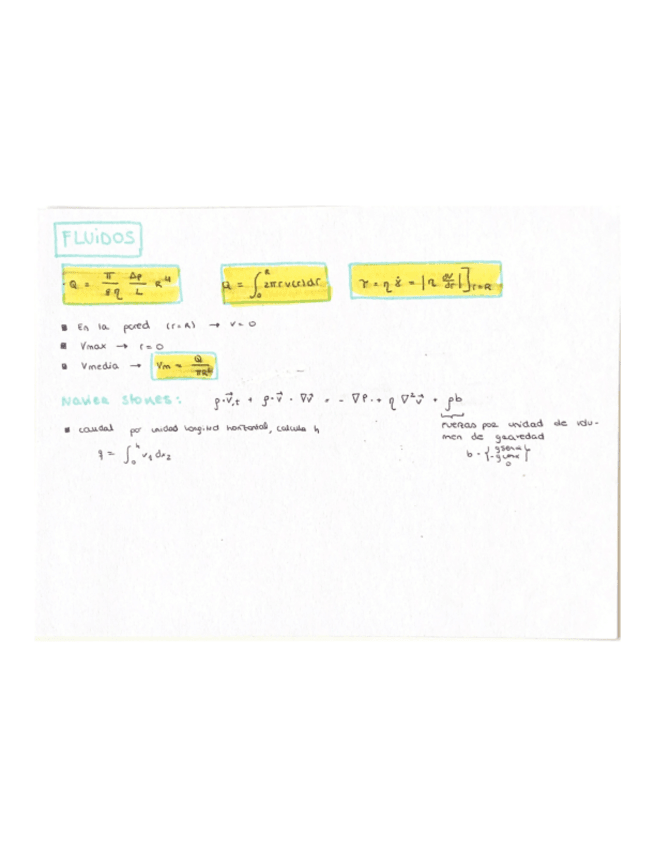 FLUiDOS
Q = π/8η Δp/L R⁴
Q = ∫₀ᴿ 2πr v(r) dr
τ = η γ̇ = |η dv/dr|]r=R
En la pared (r=R) → v=0
Vmax → r=0
Vmedia → Vm = Q/πR²
Navier stokes: ρ·v⃗,t + ρ·v⃗ · ∇v⃗ = - ∇P + η ∇²v⃗ + ρb
fuerzas por unidad de volu-
men de gravedad
b = { g senα
-g cosα
0 }
caudal por unidad longitud horizontal, calcula h
q = ∫₀ʰ v₁ dx₂